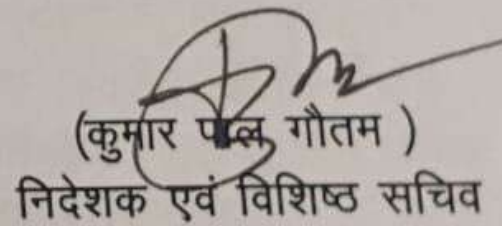 (कुमार पाल गौतम )
निदेशक एवं विशिष्ठ सचिव